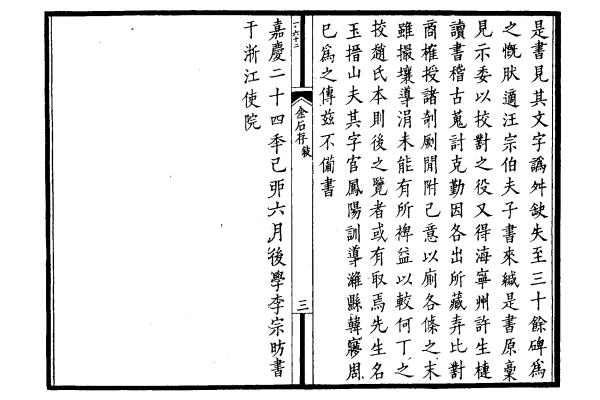 是書見其文字譌舛缺失至三十餘碑爲
之慨肰適汪宗伯夫子書來緘是書原稾
見示委以校對之役又得海寧州許生槤
讀書稽古蒐討克勤因各出所藏弆比對
商榷授諸剞劂閒附己意以廁各條之末
雖撮壤導涓未能有所裨益以較何丁之
挍趙氏本則後之覽者或有取焉先生名
玉搢山夫其字官鳳陽訓導濰縣韓㝱周
已爲之傳玆不備書
金石存敍
三
嘉慶二十四秊己丣六月後學李宗昉書
于浙江使院